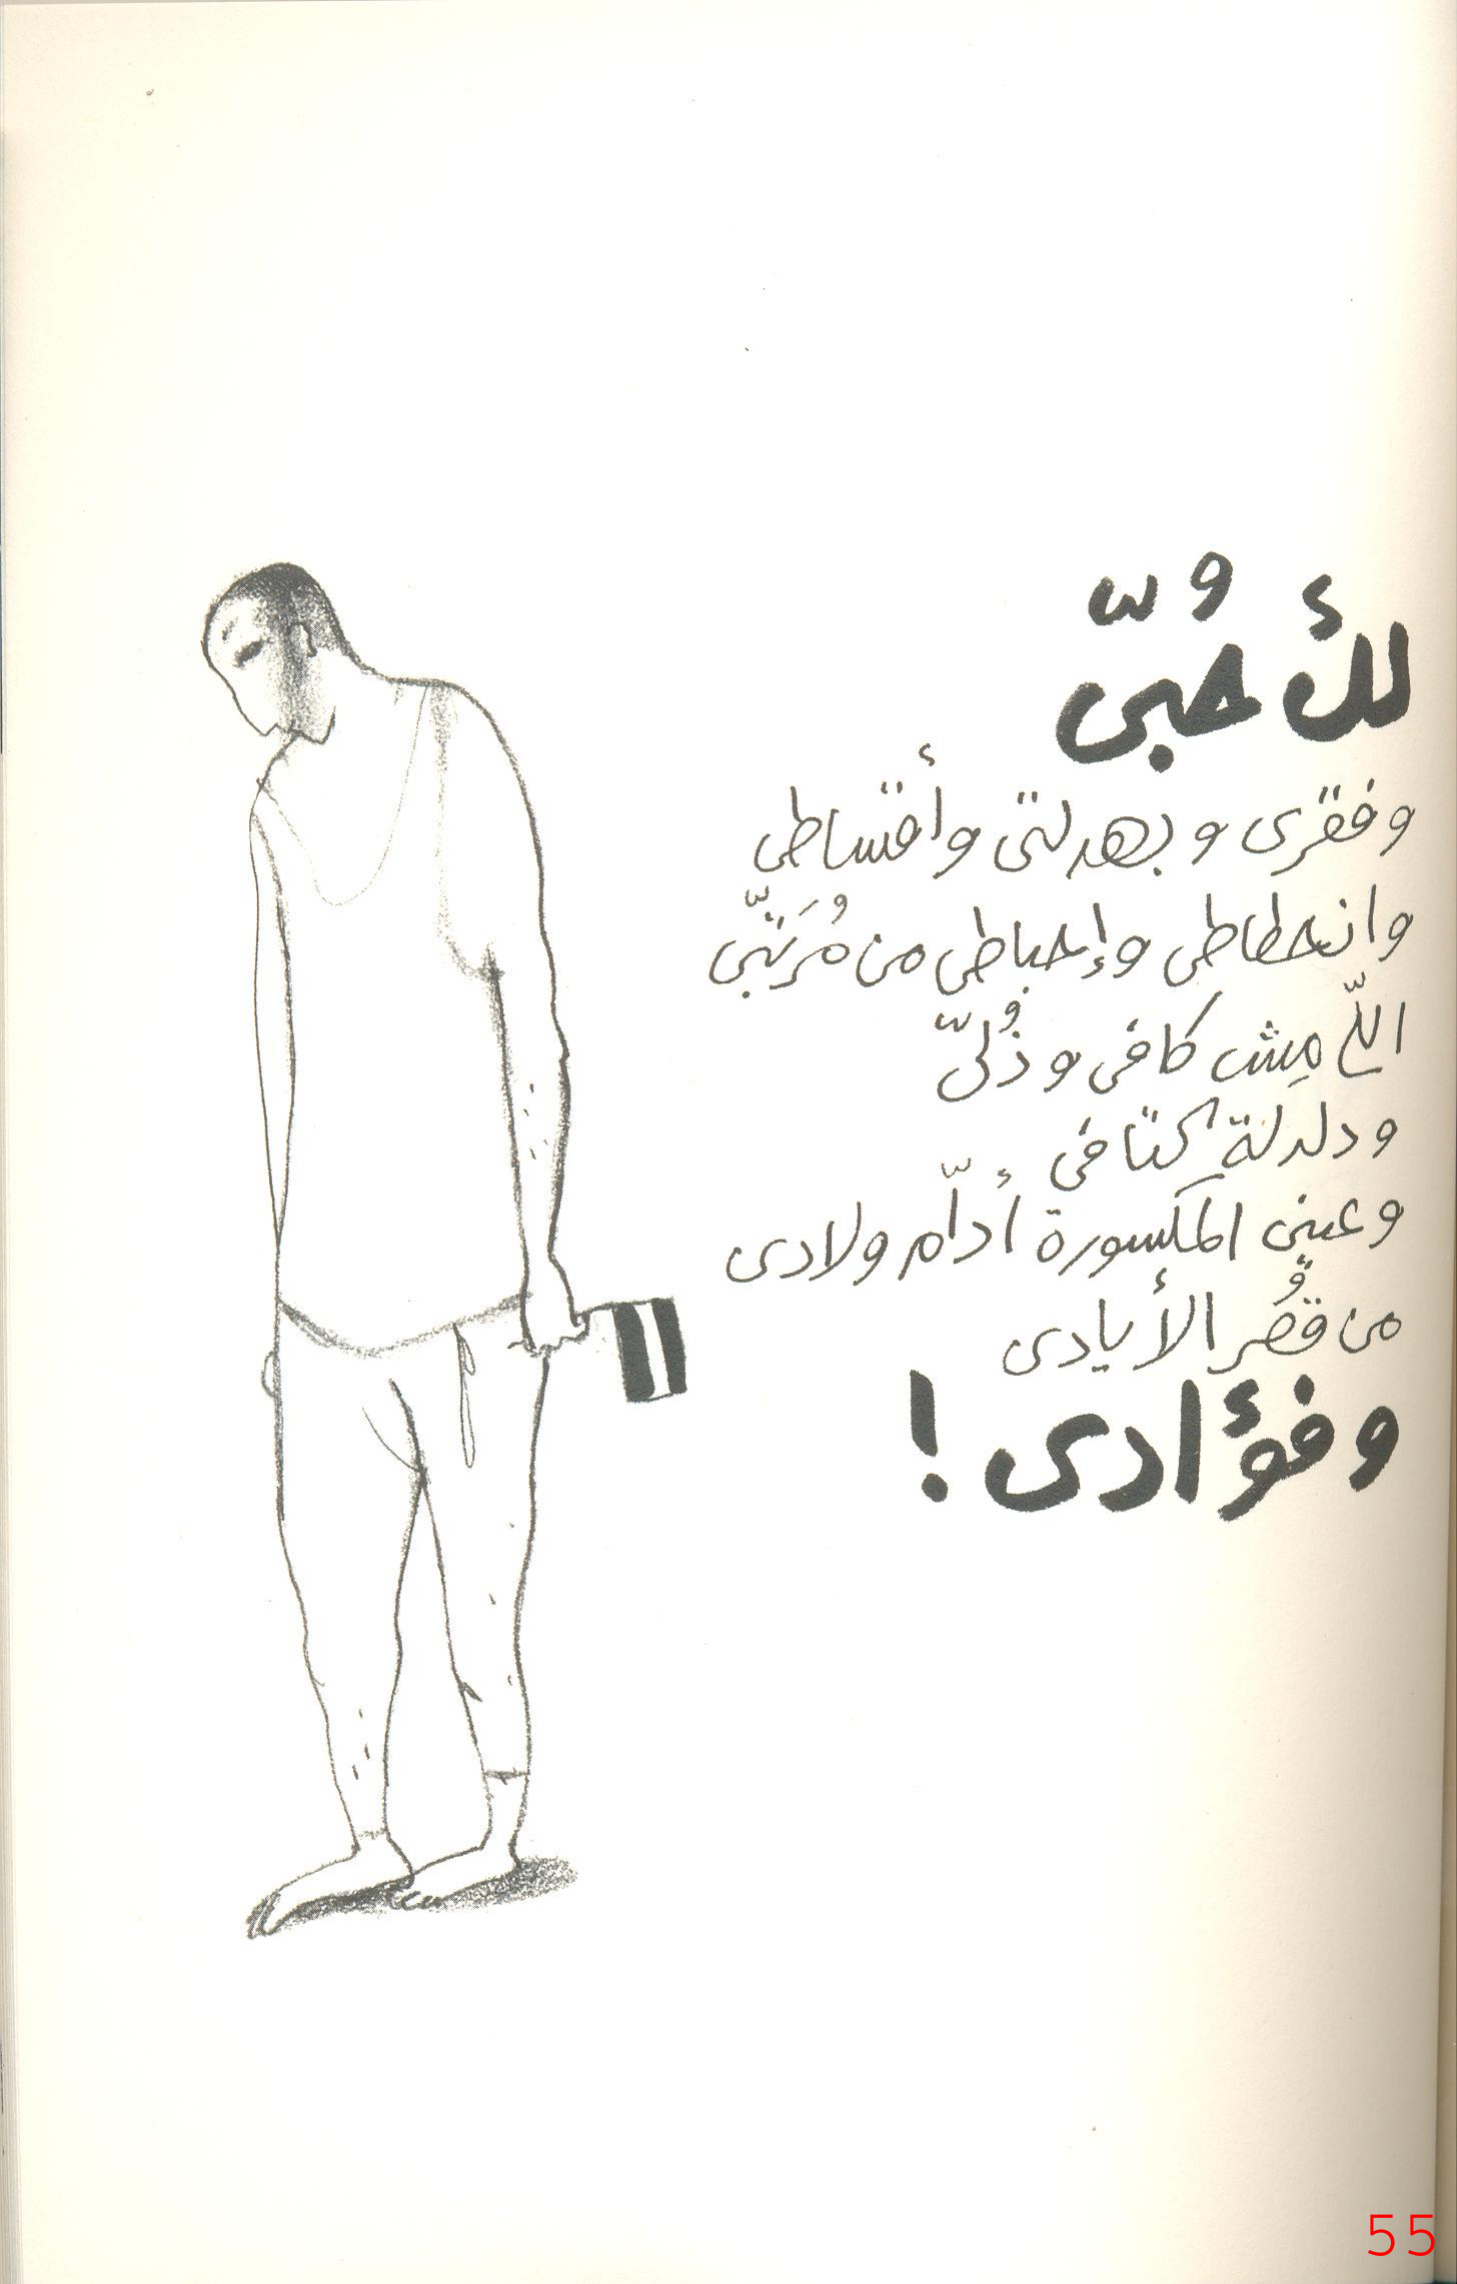 لك حُبّى
وفقرى وبهدلتى وأقساطى
وانحطاطى وإحباطى من مُرَتّبى
اللّى مِش كافى وذُلّى
ودلدلة كتافى
وعينى المكسورة أدّام ولادى
من قُصْر الأيادى
وفؤادى!
55